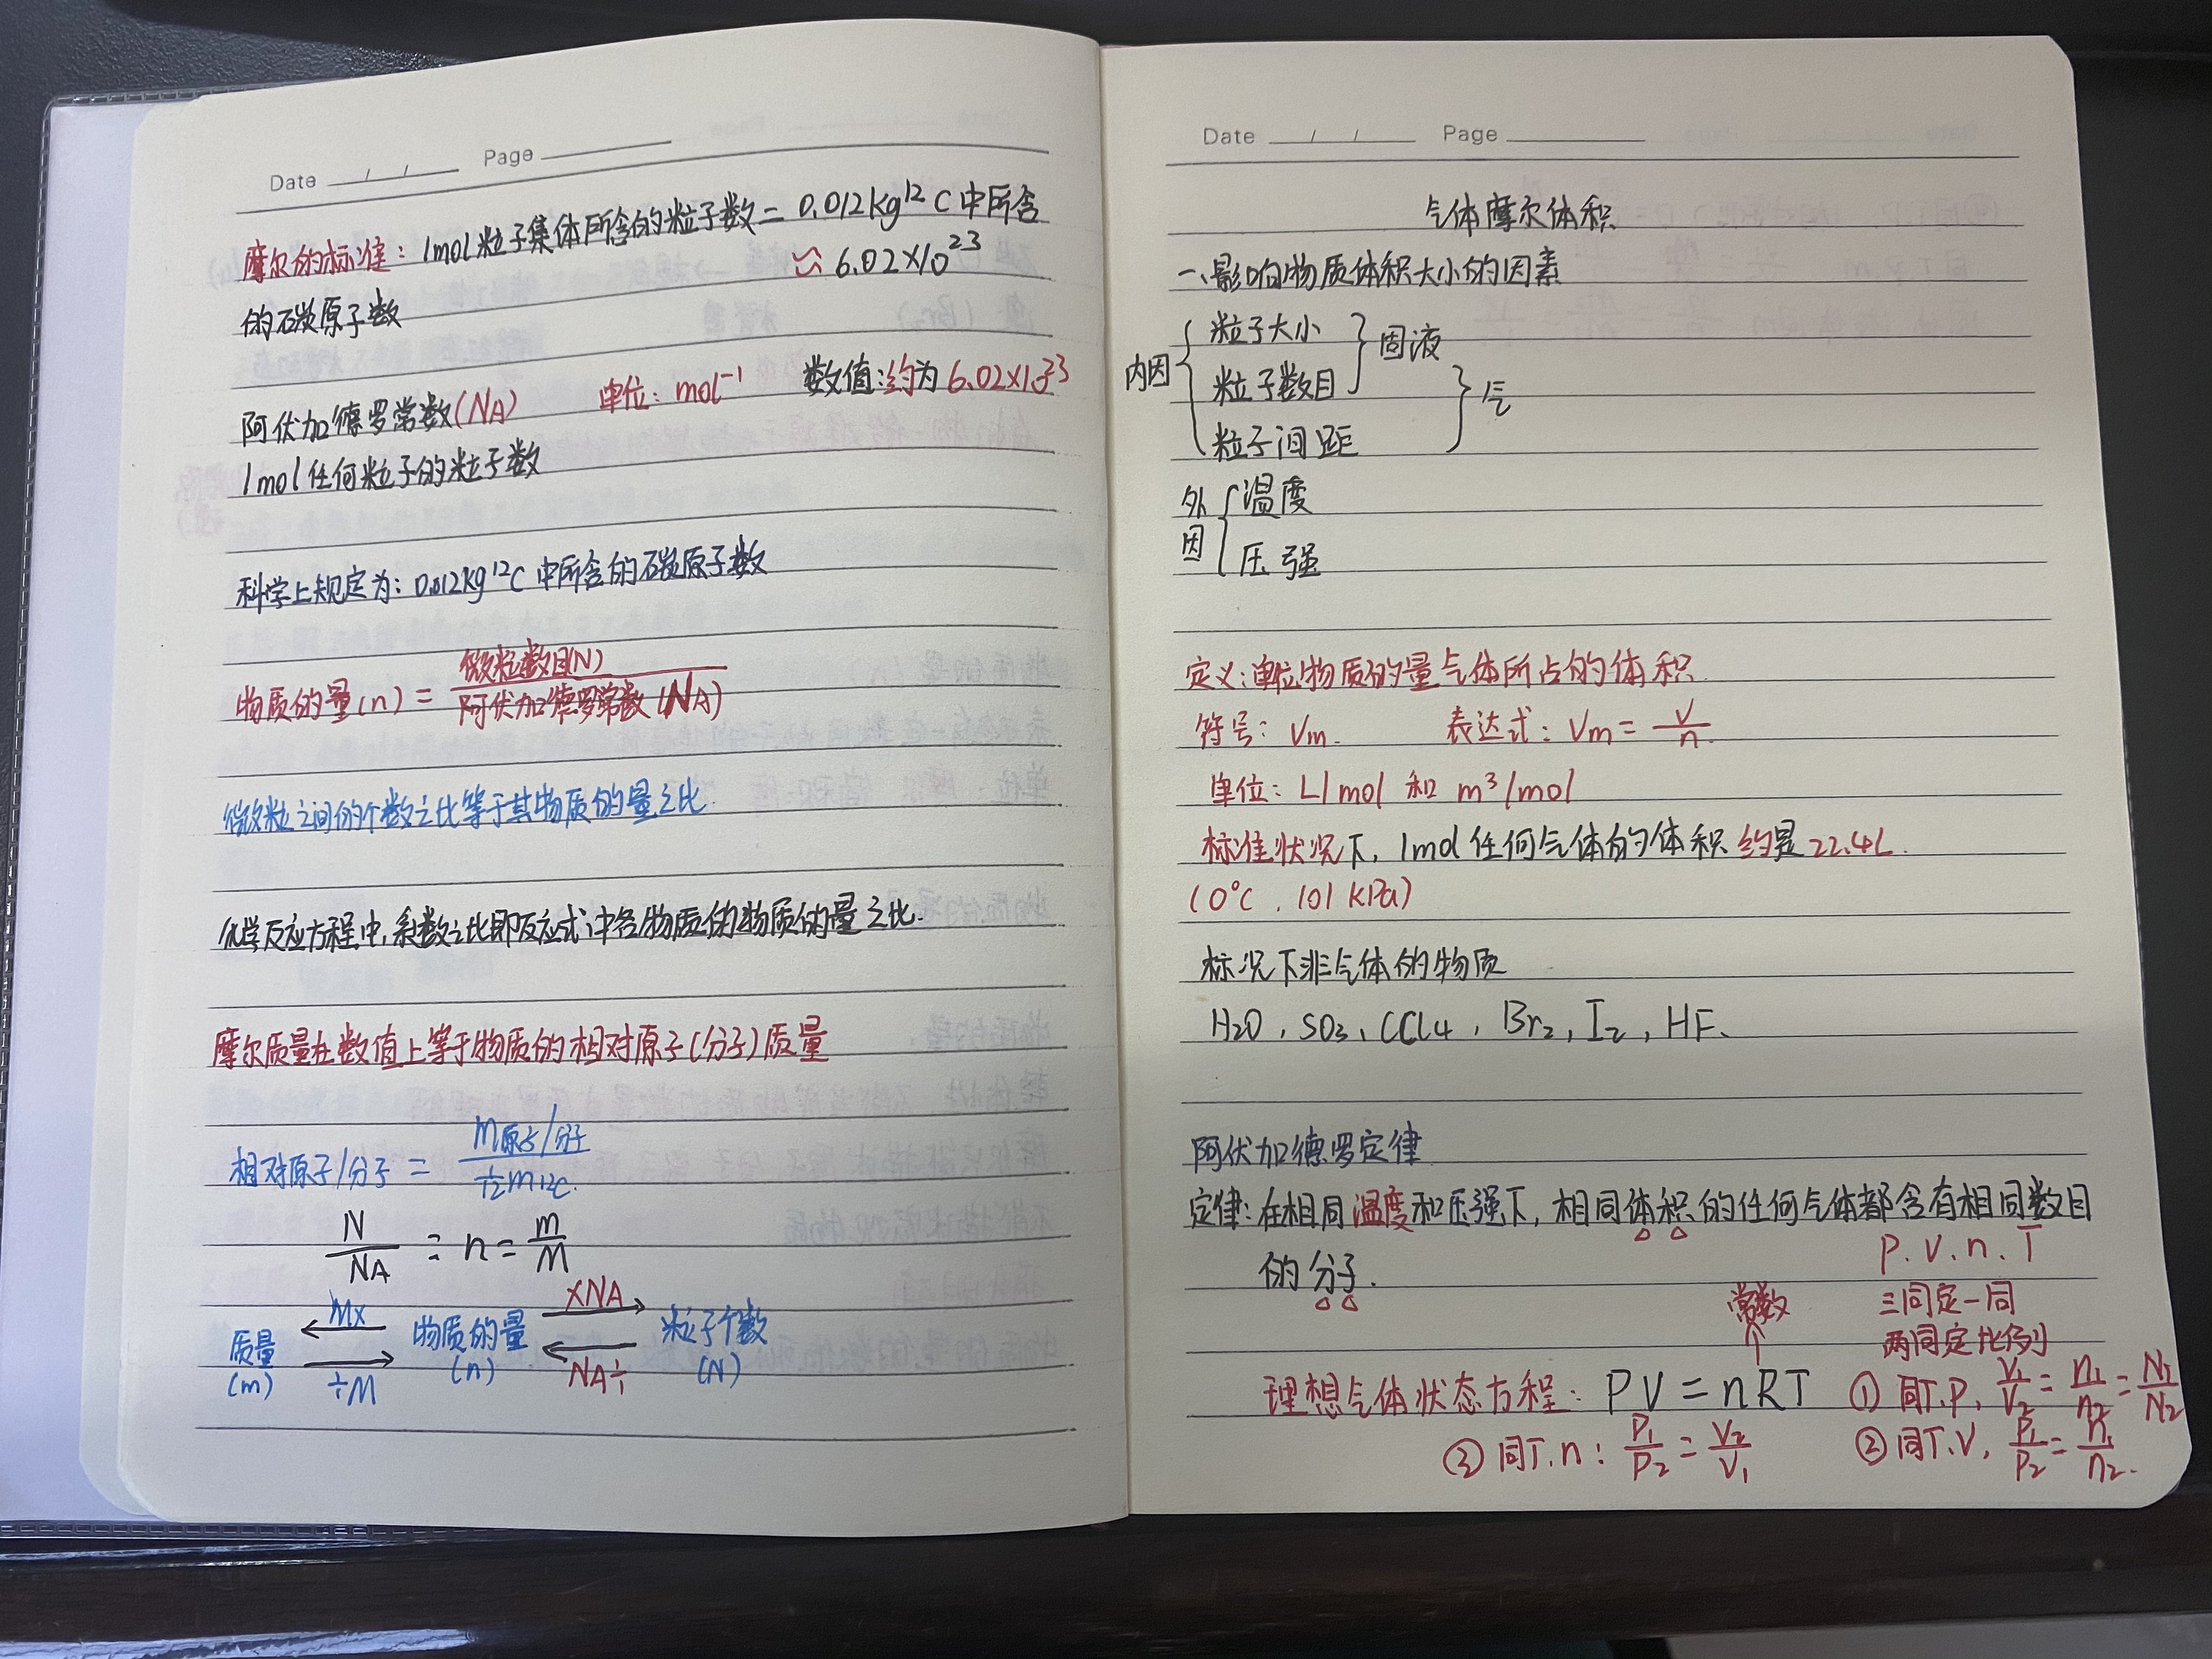 Date / / Page
摩尔的标准：1mol粒子集体所含的粒子数 = 0.012kg¹²C中所含
≈ 6.02×10²³
的碳原子数
阿伏加德罗常数(NA) 单位：mol⁻¹ 数值：约为6.02×10²³
1mol任何粒子的粒子数
科学上规定为：0.012kg¹²C中所含的碳原子数
物质的量(n) = 微粒数目(N) / 阿伏加德罗常数(NA)
微粒之间的个数之比等于其物质的量之比.
化学反应方程中，系数之比即反应式中各物质的物质的量之比.
摩尔质量在数值上等于物质的相对原子(分子)质量
相对原子/分子 = m原子/分子 / 1/12 m¹²C.
N/NA = n = m/M
M× ×NA
质量 物质的量 粒子个数
(m) (n) (N)
÷M NA÷
Date / / Page
气体摩尔体积
一、影响物质体积大小的因素
内因 { 粒子大小 } 固液
粒子数目 } 气
粒子间距
外因 { 温度
压强
定义：单位物质的量气体所占的体积.
符号：Vm. 表达式：Vm = V/n.
单位：L/mol 和 m³/mol
标准状况下，1mol任何气体的体积约是22.4L.
(0°C，101KPa)
标况下非气体的物质
H2O，SO3，CCl4，Br2，I2，HF、
阿伏加德罗定律
定律：在相同温度和压强下，相同体积的任何气体都含有相同数目
的分子.
P.V.n.T
常数 三同定一同
两同定比例
理想气体状态方程：PV = nRT ① 同T.P，V1/V2 = n1/n2 = N1/N2
③ 同T.n：P1/P2 = V2/V1 ② 同T.V，P1/P2 = n1/n2.